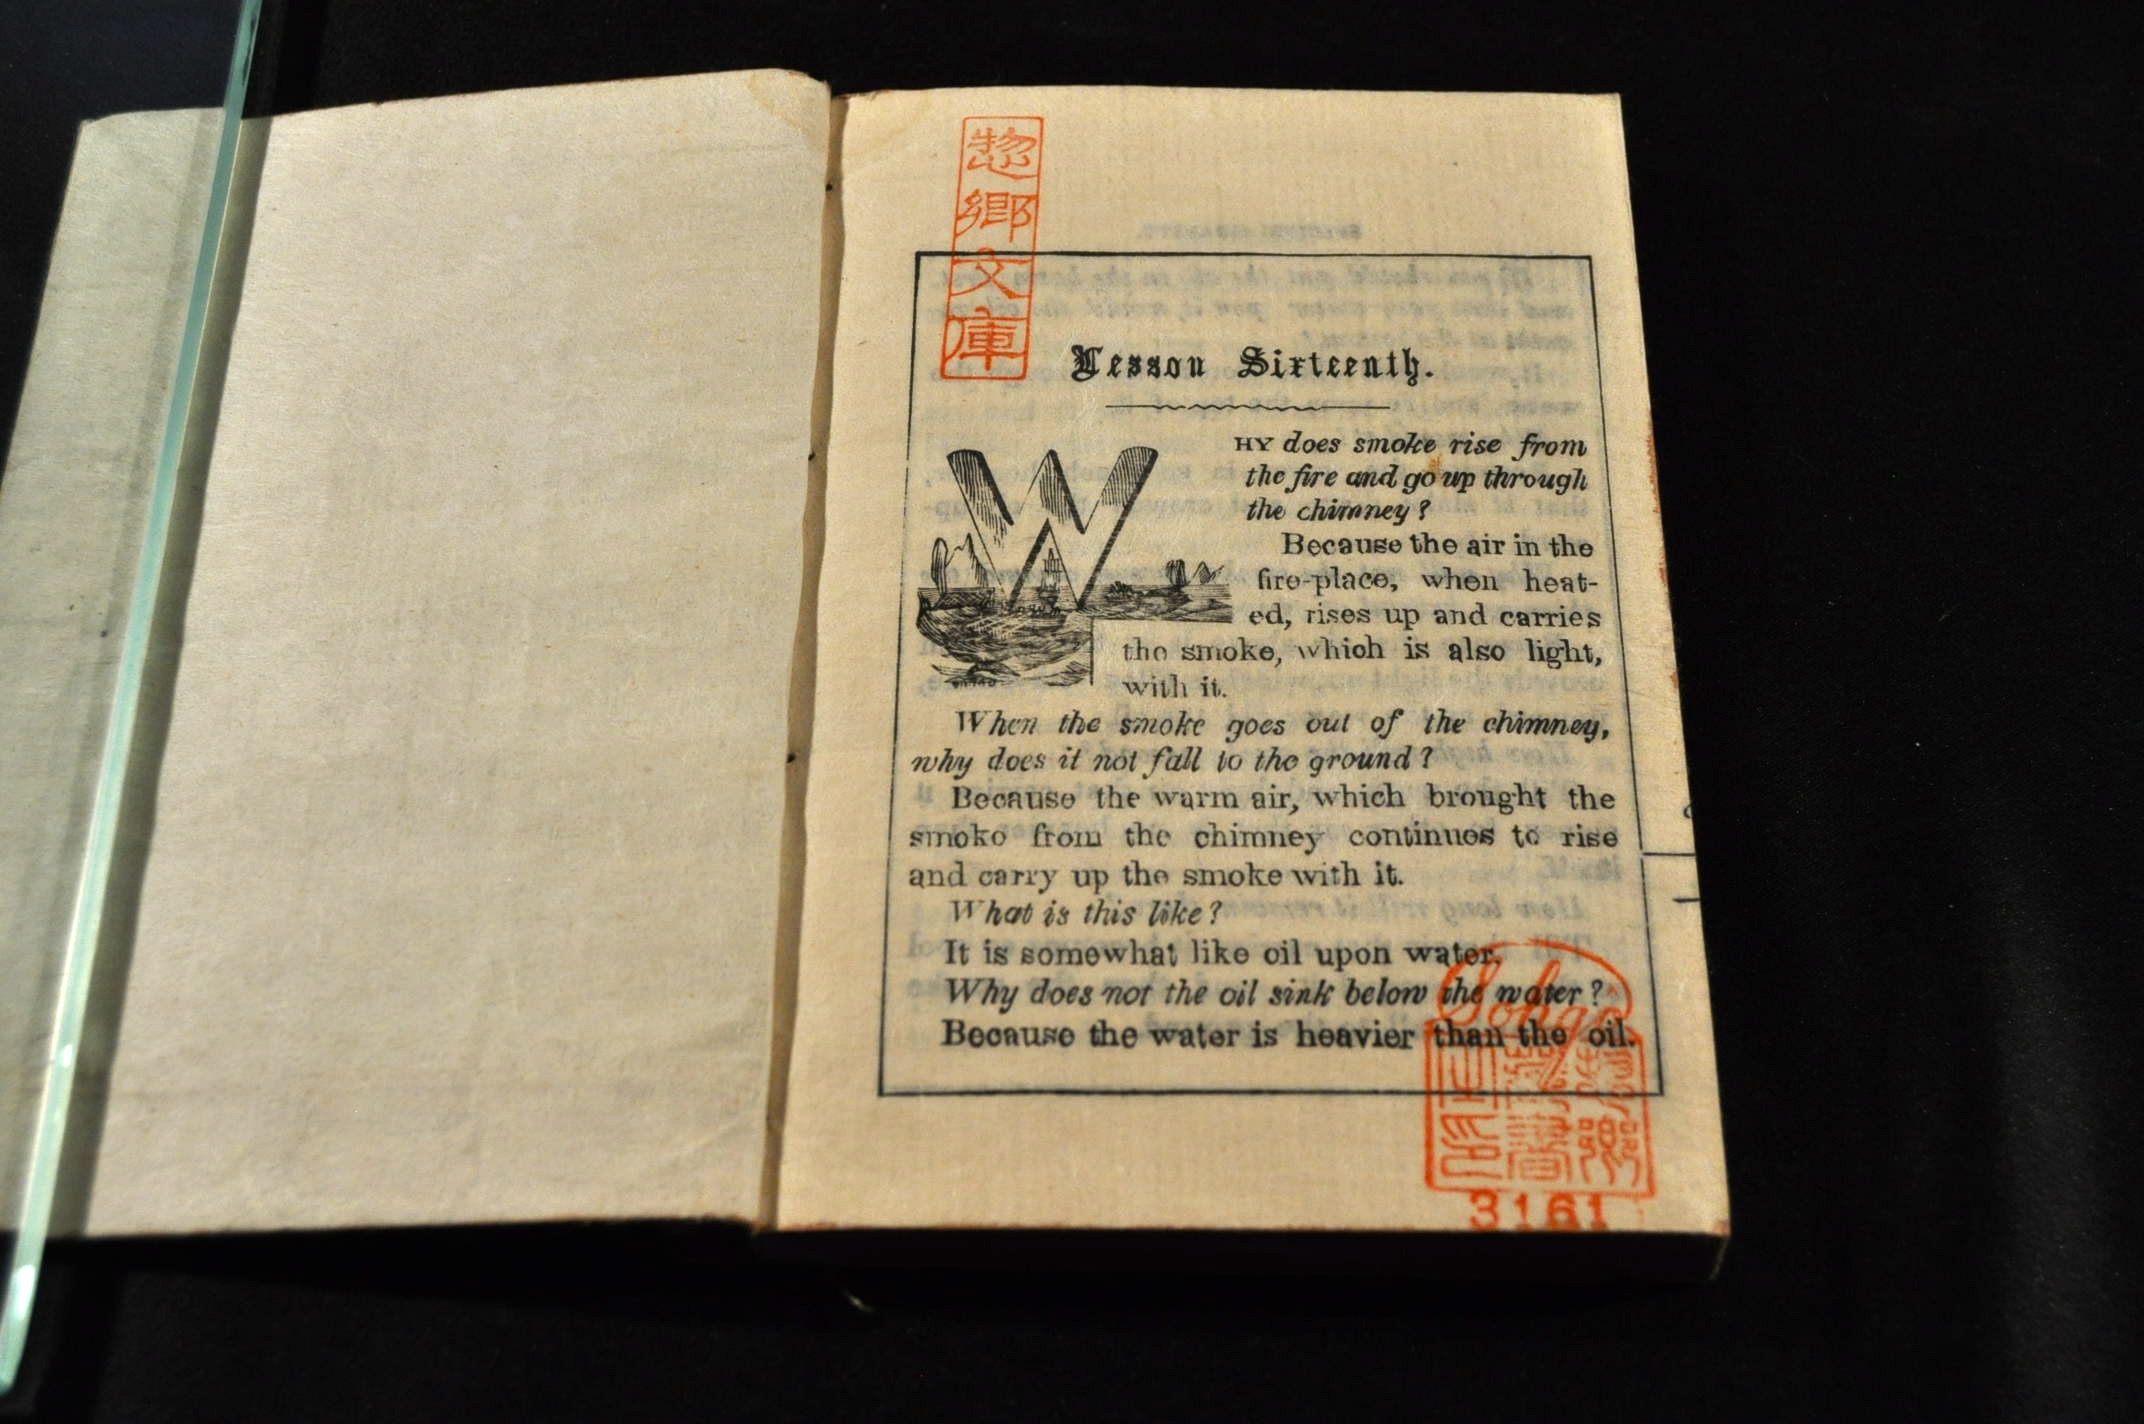 惣郷文庫
Lesson Sixteenth.
WHY does smoke rise from
the fire and go up through
the chimney?
Because the air in the
fire-place, when heat-
ed, rises up and carries
the smoke, which is also light,
with it.
When the smoke goes out of the chimney,
why does it not fall to the ground?
Because the warm air, which brought the
smoke from the chimney continues to rise
and carry up the smoke with it.
What is this like?
It is somewhat like oil upon water.
Why does not the oil sink below the water?
Because the water is heavier than the oil.
Sohgo
3161